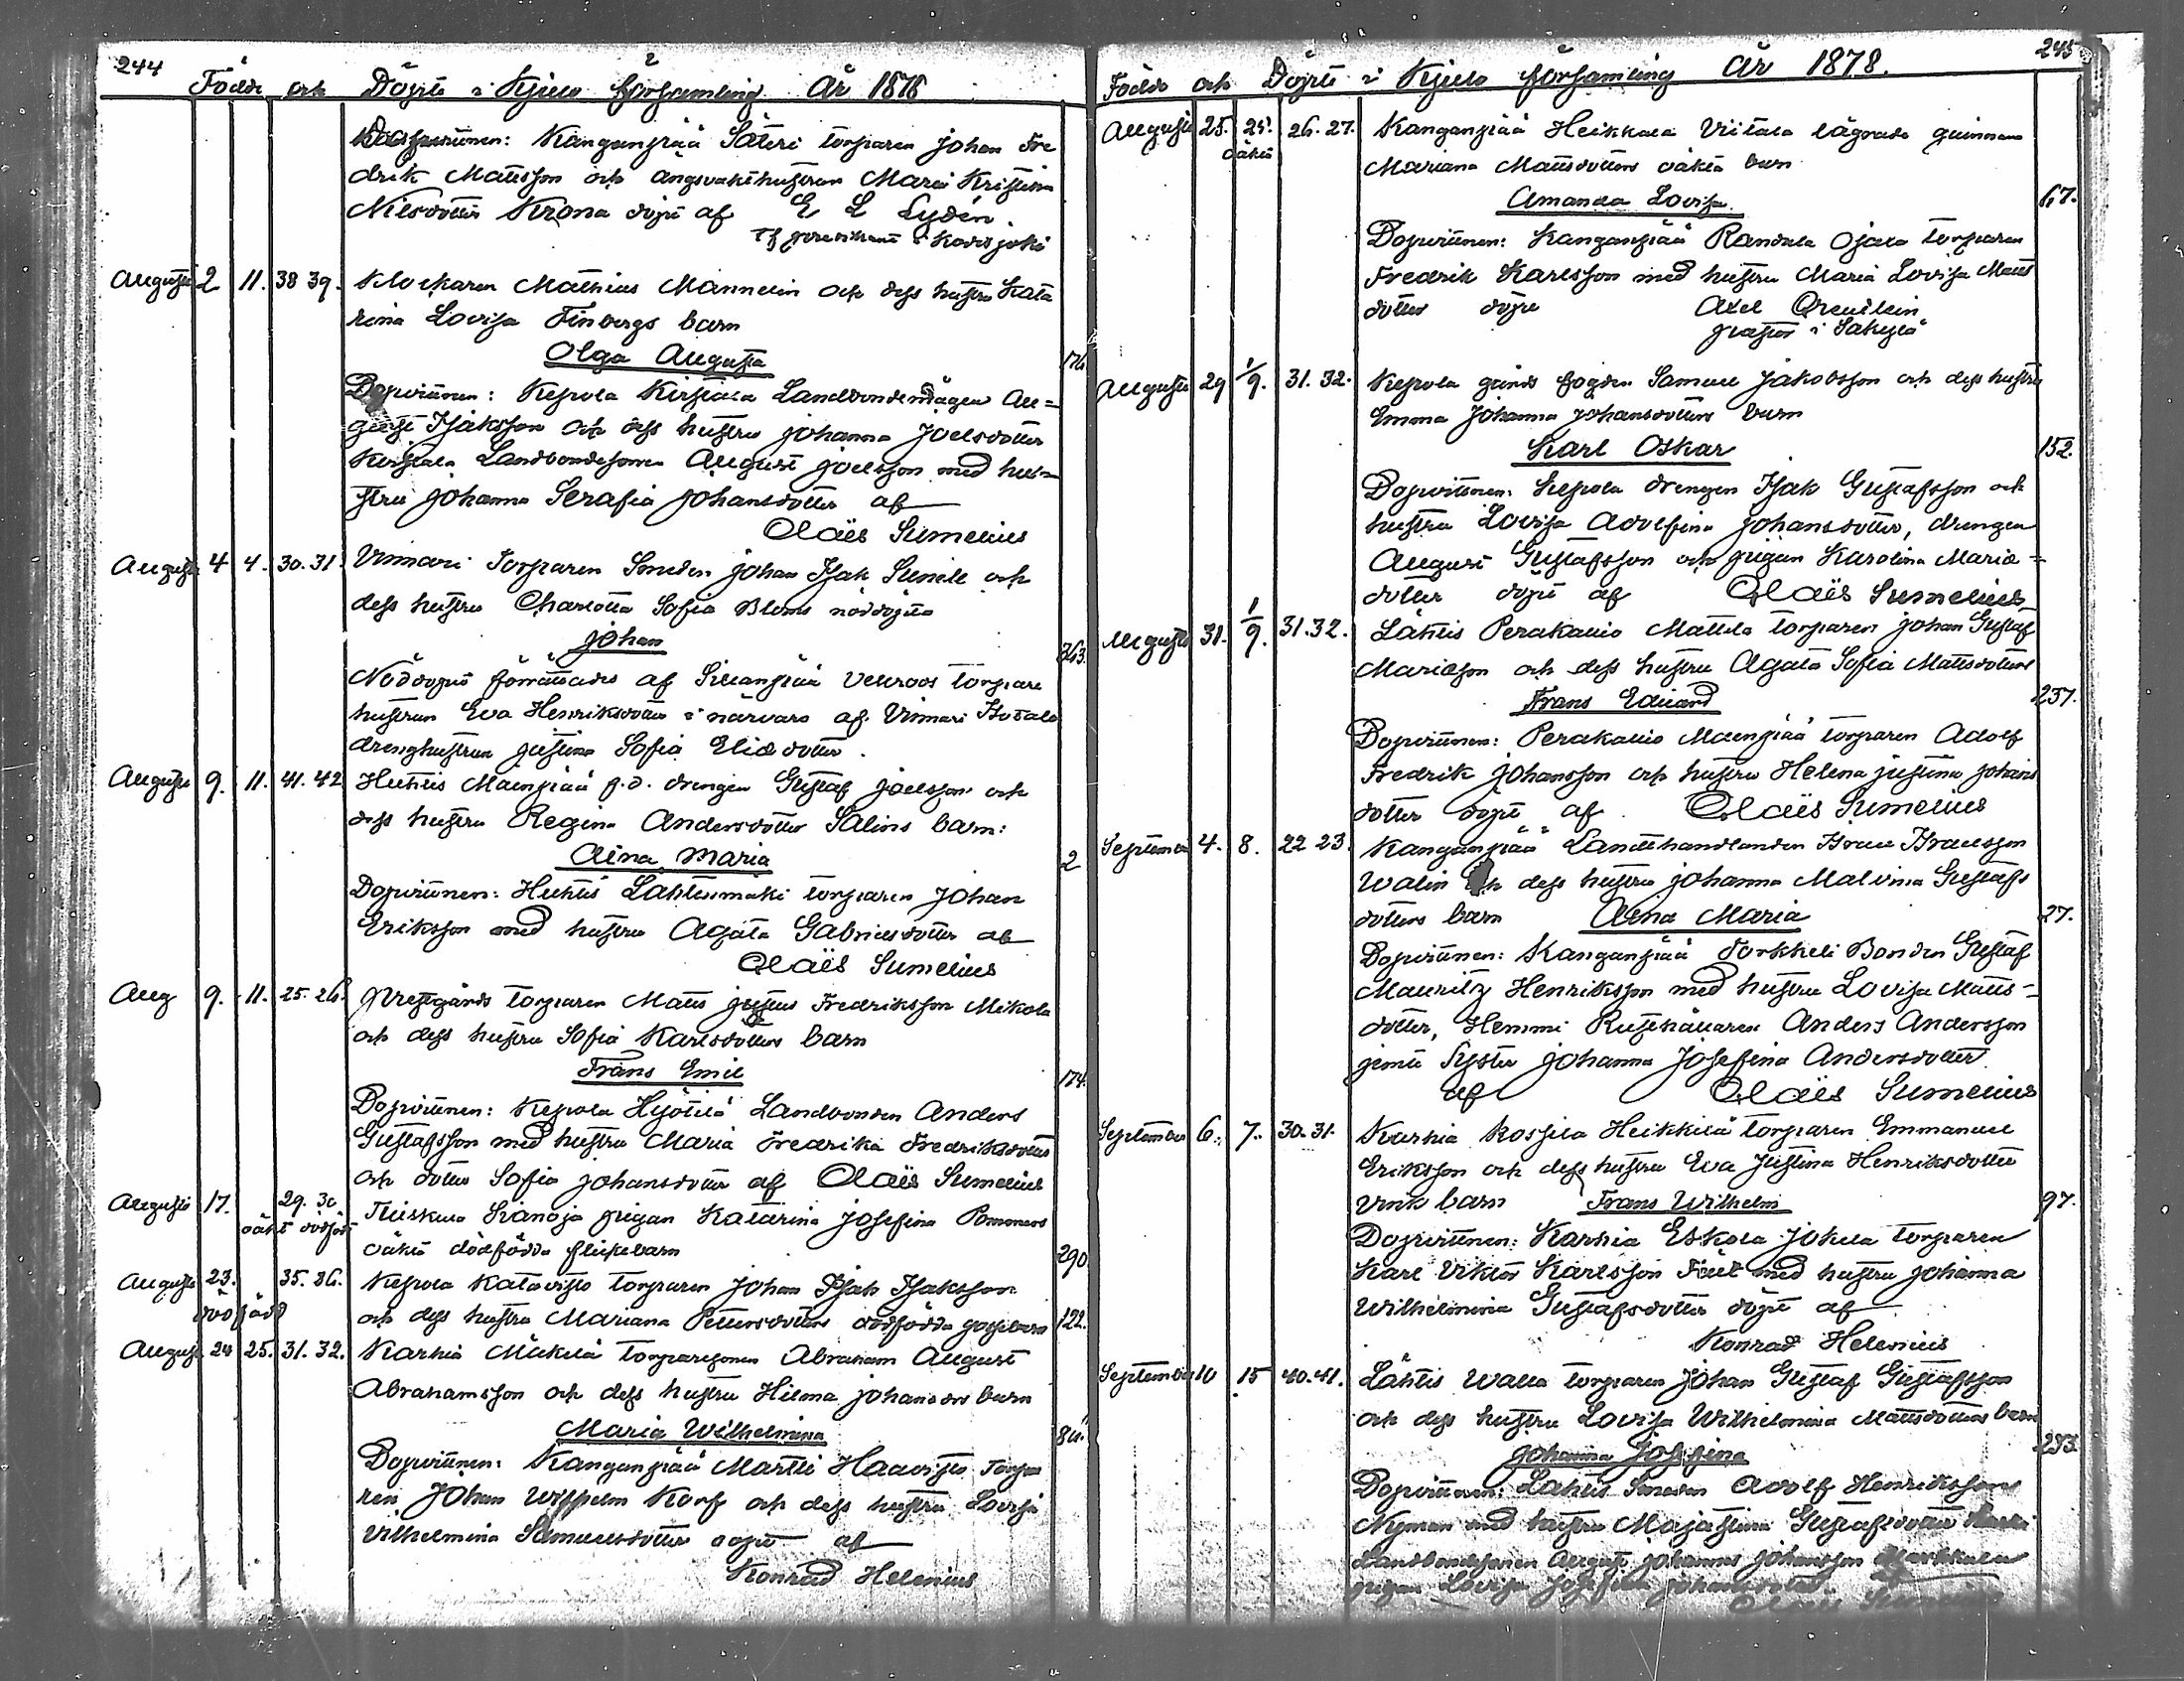 244
Födde och Döpte i Kjulo församling År 1878
Dopvittnen: Kanganpää Säteri torparen Johan Fre
drik Mattsson och ängsvakthustrun Maria Kristina
Nilsdotter Krona döpt af E L Lydén
Tf predikant i Kauvjoki
Augusti 2 11. 38 39. Klockaren Mathias Mannelin och dess hustru Kata
rina Lovisa Finbergs barn
Olga Augusta
Dopvittnen: Kepola Kirstala Landbondemågen Au=
gust Isaksson och dess hustru Johanna Joelsdotter
Kirstala Landbondesonen August Joelsson med hu=
stru Johanna Serafia Johansdotter af
Claës Sumelius
Augusti 4 4. 30. 31. Vinnari Torparen Smeden Johan Isak Sunile och
dess hustru Charlotta Sofia Bloms nöddöpta
Johan 363.
Nöddopet förrättades af Sieranpää Velroos torpare
hustrun Eva Henriksdotter i närvaro af Vinnari
drenghustrun Justina Sofia Eliedotter.
Augusti 9. 11. 41. 42 Huhtis Maenpää f.d. drengen Gustaf Joelsson och
dess hustru Regina Andersdotter Salins barn:
Aina Maria 2
Dopvittnen: Huhtis Lähteenmäki torparen Johan
Eriksson med hustru Agata Gabrielsdotter af
Claës Sumelius
Aug 9. 11. 25. 26. Prestgårds torparen Matts Justus Fredriksson Mikola
och dess hustru Sofia Karlsdotters barn
Frans Emil 174.
Dopvittnen: Kepola Hyötilä Landbonden Anders
Gustafsson med hustru Maria Fredrika Fredriksdotter
och dotter Sofia Johansdotter af Claës Sumelius
Augusti 17. 29. 30 Tuiskula Sianoja pigan Katarina Josefina Pomoners
oäkt dödfödt oäkta dödfödda flickebarn 290
Augusti 23. 35. 36. Kepola Katavisto torparen Johan Isak Isaksson
dödfödd och dess hustru Mariana Pettersdotters dödfödda gossebarn 122.
August 24 25. 31. 32. Karhia Mäkilä torparesonen Abraham August
Abrahamsson och dess hustru Hilma Johansdrs barn
Maria Wilhelmina
Dopvittnen: Kanganpää Martti Haavisto torpa
ren Johan Wilhelm Korf och dess hustru Lovisa
Vilhelmina Samuelsdotter döpt af
Konrad Helenius
245
Födde och Döpte i Kjulo församling År 1878.
Augusti 25. 25. 26. 27. Kanganpää Heikkala Viitala lägrade quinnan
oäkta Mariana Mattsdotters oäkta barn
Amanda Lovisa 67.
Dopvittnen: Kanganpää Randala Ojala torparen
Fredrik Karlsson med hustru Maria Lovisa Matts
dotter döpt Axel Qreutlein
pastor i Säkylä
Augusti 29 1/9. 31. 32. Kepola gårds fogden Samuel Jakobsson och dess hustru
Emma Johanna Johansdotters barn
Karl Oskar 152.
Dopvittnen: Kepola drengen Isak Gustafsson och
hustru Lovisa Adolfina Johansdotter, drengen
August Gustafsson och pigan Karolina Marie=
dotter döpt af Claës Sumelius
Augusti 31. 1/9. 31. 32. Lähtis Perakallio Mattila torparen Johan Gustaf
Mariæson och dess hustru Agata Sofia Mattsdotters
Frans Eduard 237.
Dopvittnen: Perakallio Maenpää torparen Adolf
Fredrik Johansson och hustru Helena Justina Johans
dotter döpt af Claës Sumelius
September 4. 8. 22 23. Kanganpää Landthandlanden Israel Israelsson
Walin och dess hustru Johanna Malvina Gustafs
dotters barn Aina Maria 27.
Dopvittnen: Kanganpää Torkkeli Bonden Gustaf
Mauritz Henriksson med hustru Lovisa Matts=
dotter, Hemmi Rusthållaren Anders Andersson
jemte Syster Johanna Josefina Andersdotter
af Claës Sumelius
September 6. 7. 30. 31. Karhia Kospila Heikkilä torparen Emmanuel
Eriksson och dess hustru Eva Justina Henriksdotter
barn Frans Wilhelm 97.
Dopvittnen: Karhia Eskola Jokela torparen
Karl Viktor Karlsson med hustru Johanna
Wilhelmina Gustafsdotter döpt af
Konrad Helenius
September 10 15 40. 41. Lähtis Walla torparen Johan Gustaf Gustafsson
och dess hustru Lovisa Wilhelmina Mattsdotters barn
Johanna Josefina 233.
Dopvittnen: Lähtis Smeden Adolf Henriksson
Nyman med hustru Majastina Gustafsdotter
Landbondesonen August Johannes Johansson
pigan Lovisa Josefina Johansdotter
Claës Sumelius